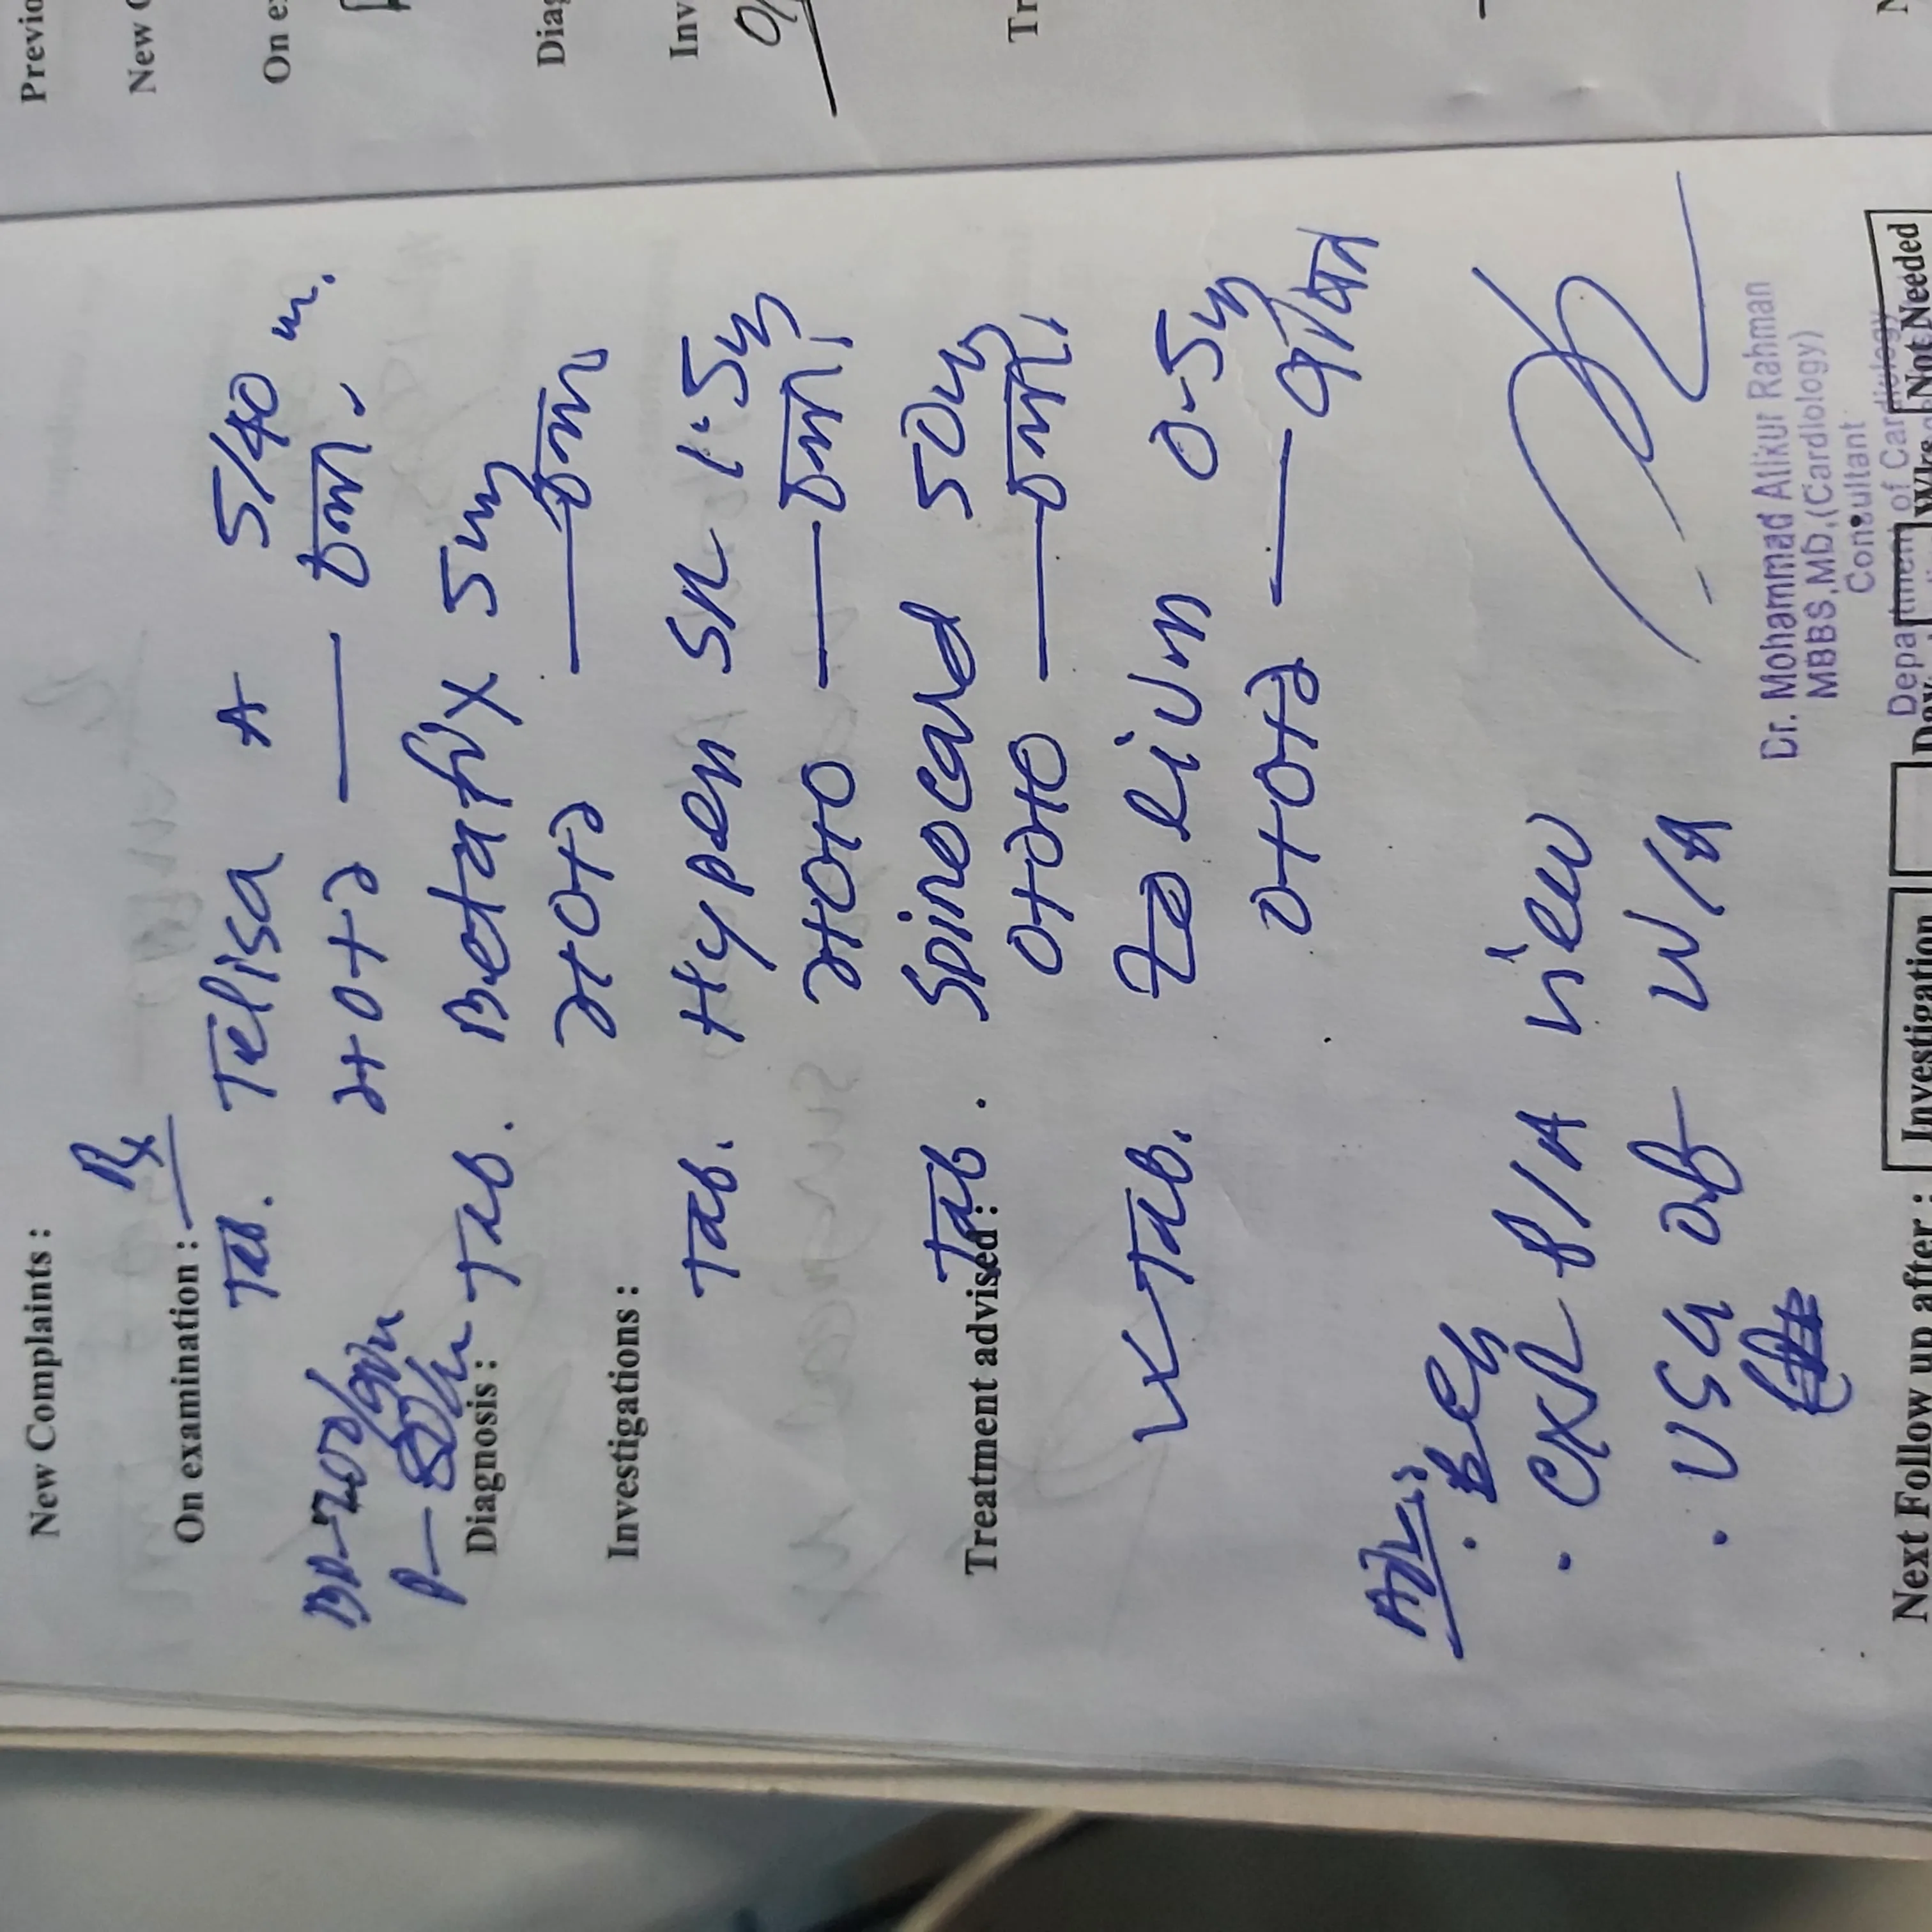 Previo
New C
On e
Diag
Inv
Tr
New Complaints :
Rx
On examination :
Tab. Telisa A 5/40
১+০+১ — চলবে
BP-200/90
P-80/m
Diagnosis :
Tab. Betafix 5mg
১+০+১ — চলবে
Investigations :
Tab. Hypen SR 1.5mg
১+০+০ — চলবে
Treatment advised :
Tab. Spinocard 50mg
০+১+০ — চলবে
Tab. 0.5mg
০+০+১ —
Adv:
. ECG
. CXR P/A view
. USG of W/A
Dr. Mohammad Atikur Rahman
MBBS,MD,(Cardiology)
Consultant
Department of Cardiology
Next Follow up after :
Investigation
Wks
Not Needed